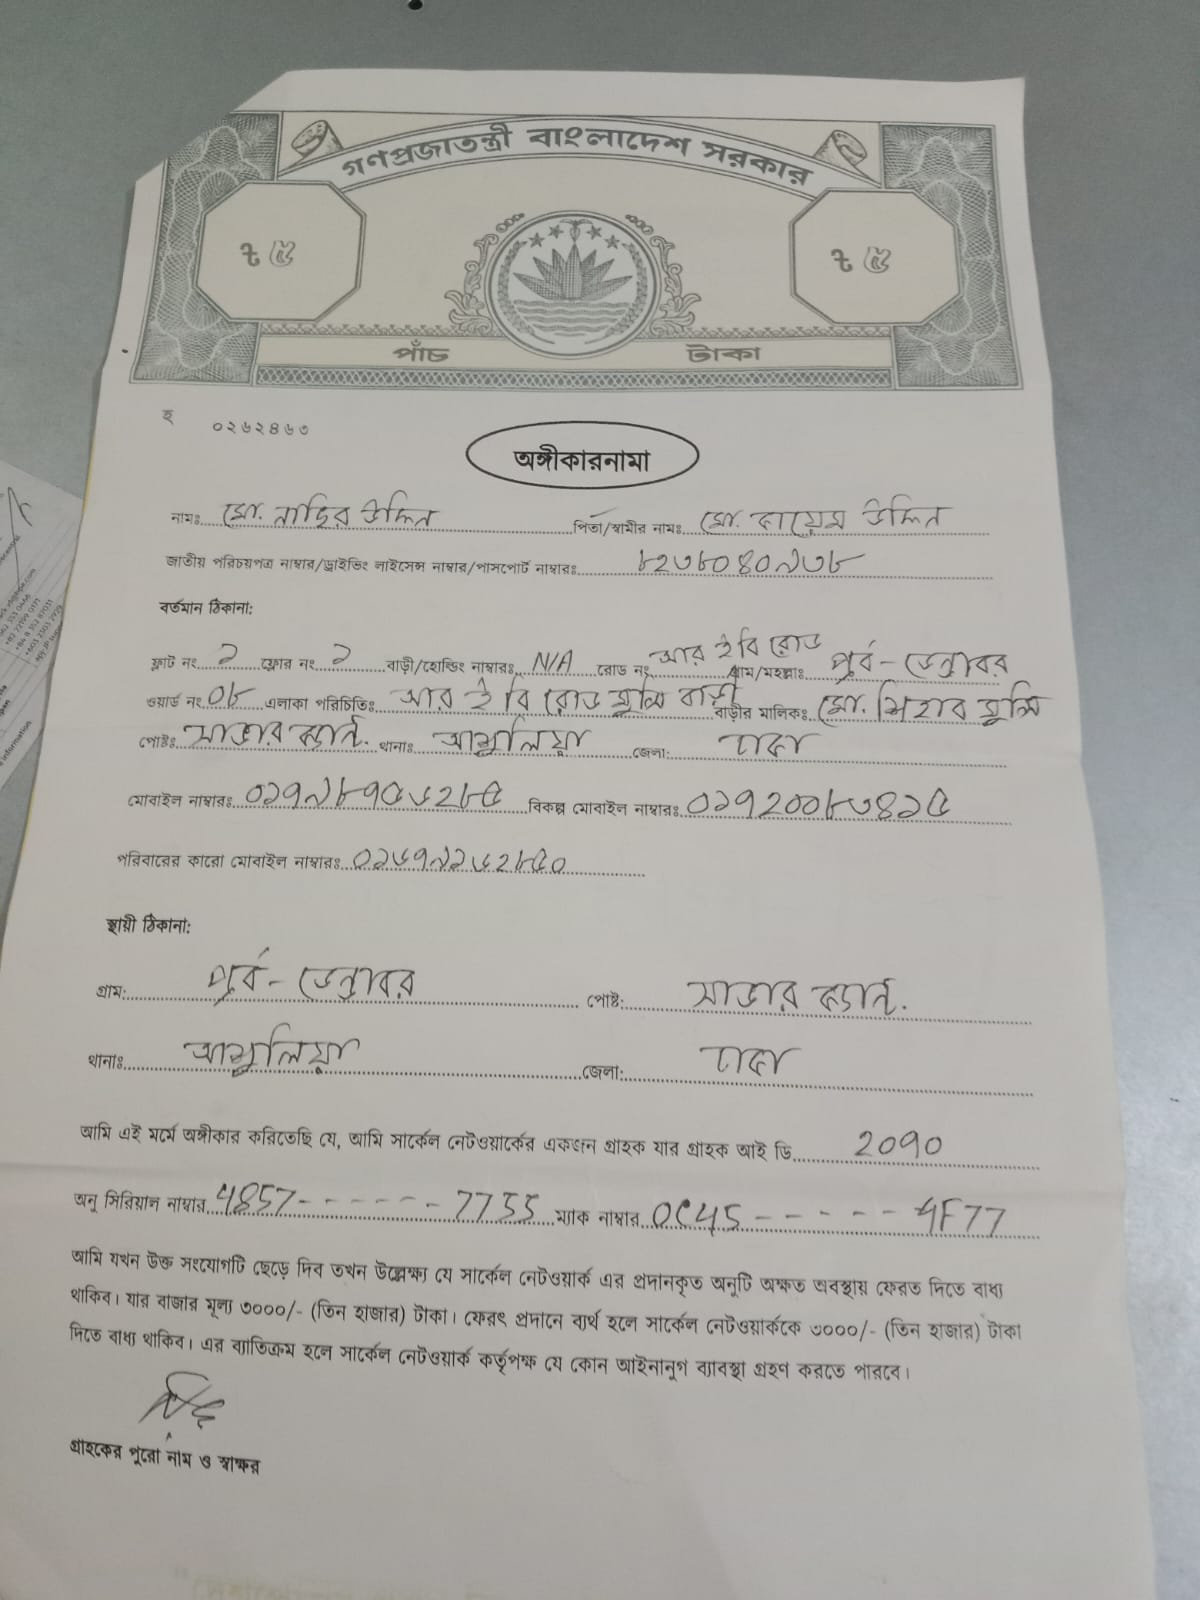 গণপ্রজাতন্ত্রী বাংলাদেশ সরকার
৳ ৫ ৳ ৫
পাঁচ টাকা
হ ০২৬২৪৬৩
অঙ্গীকারনামা
নামঃ মো. নাছির উদ্দিন পিতা/স্বামীর নামঃ মো. কায়েম উদ্দিন
জাতীয় পরিচয়পত্র নাম্বার/ড্রাইভিং লাইসেন্স নাম্বার/পাসপোর্ট নাম্বারঃ ৮২৩৮০৪০৯৩৮
বর্তমান ঠিকানা:
ফ্লাট নং ১ ফ্লোর নং ১ বাড়ী/হোল্ডিং নাম্বারঃ N/A রোড নং আর ই বি রোড গ্রাম/মহল্লাঃ পূর্ব - ডেন্ডাবর
ওয়ার্ড নং ০৮ এলাকা পরিচিতিঃ আর ই বি রোড মুন্সি বাড়ী বাড়ীর মালিকঃ মো. মুন্সি
পোষ্টঃ সাভার ক্যান্ট. থানাঃ আশুলিয়া জেলা: ঢাকা
মোবাইল নাম্বারঃ ০১৭৯৮৭৫৬২৮৫ বিকল্প মোবাইল নাম্বারঃ ০১৭২০০৮৩৪১৫
পরিবারের কারো মোবাইল নাম্বারঃ ০১৬৭৯১৬২৮৫০
স্থায়ী ঠিকানা:
গ্রাম: পূর্ব - ডেন্ডাবর পোষ্ট: সাভার ক্যান্ট.
থানাঃ আশুলিয়া জেলা: ঢাকা
আমি এই মর্মে অঙ্গীকার করিতেছি যে, আমি সার্কেল নেটওয়ার্কের একজন গ্রাহক যার গ্রাহক আই ডি 2090
অনু সিরিয়াল নাম্বার 4857 - - - - - - 7755 ম্যাক নাম্বার 0C45 - - - - - 4F77
আমি যখন উক্ত সংযোগটি ছেড়ে দিব তখন উল্লেক্ষ্য যে সার্কেল নেটওয়ার্ক এর প্রদানকৃত অনুটি অক্ষত অবস্থায় ফেরত দিতে বাধ্য
থাকিব। যার বাজার মূল্য ৩০০০/- (তিন হাজার) টাকা। ফেরৎ প্রদানে ব্যর্থ হলে সার্কেল নেটওয়ার্ককে ৩০০০/- (তিন হাজার) টাকা
দিতে বাধ্য থাকিব। এর ব্যাতিক্রম হলে সার্কেল নেটওয়ার্ক কর্তৃপক্ষ যে কোন আইনানুগ ব্যাবস্থা গ্রহণ করতে পারবে।
গ্রাহকের পুরো নাম ও স্বাক্ষর